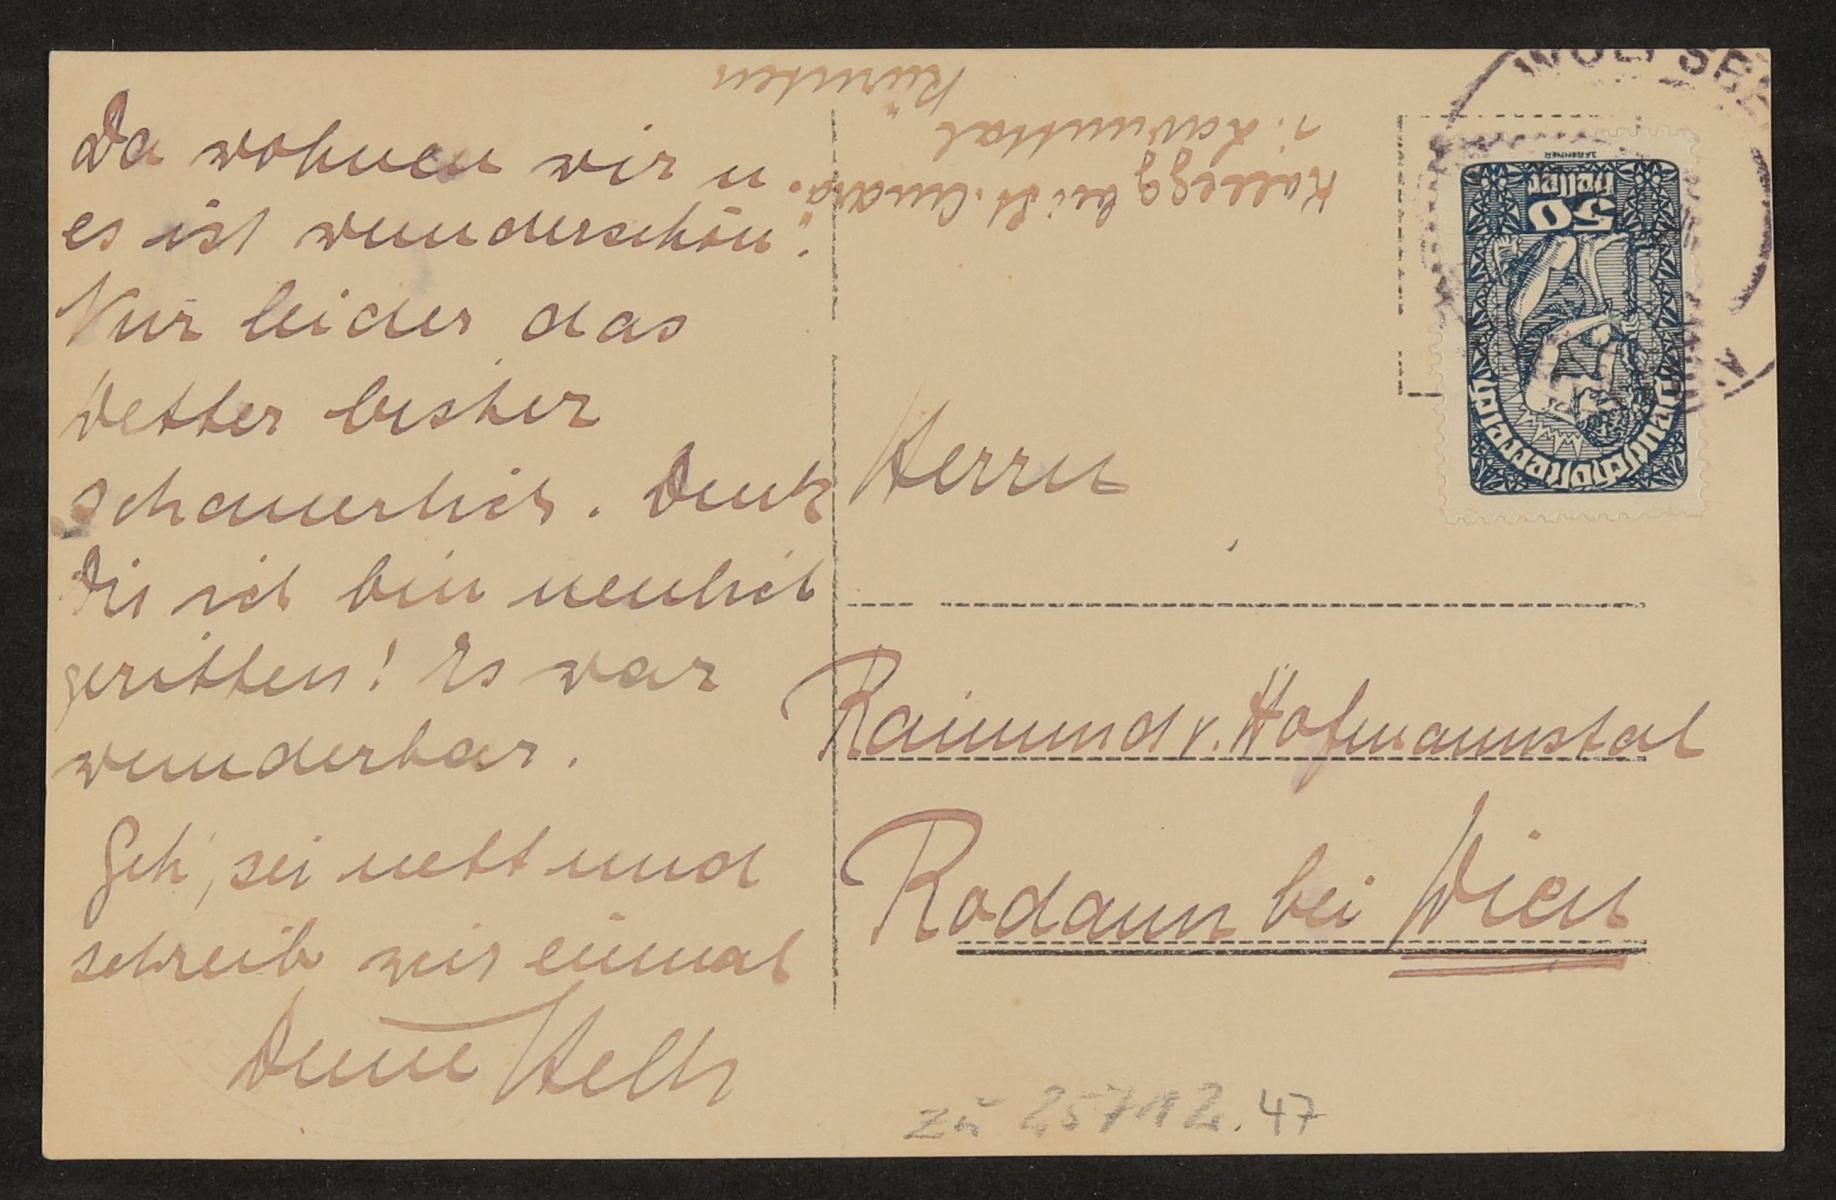 Da wohnen wir u.
es ist wunderschön.
Nur leider das
Wetter bisher
schauerlich. Denk
Dir ich bin neulich
geritten! Es war
wunderbar.
Geh, sei nett und
schreib mir einmal
Deine Helly
Kollegg bei St. Andrä.
i. Lavanttal
Kärnten
WOLFSBE
50
heller
Deutschösterreich
J.F.RENNER
Herrn
Raimund v. Hofmannstal
Rodaun bei Wien
zu 25712.47